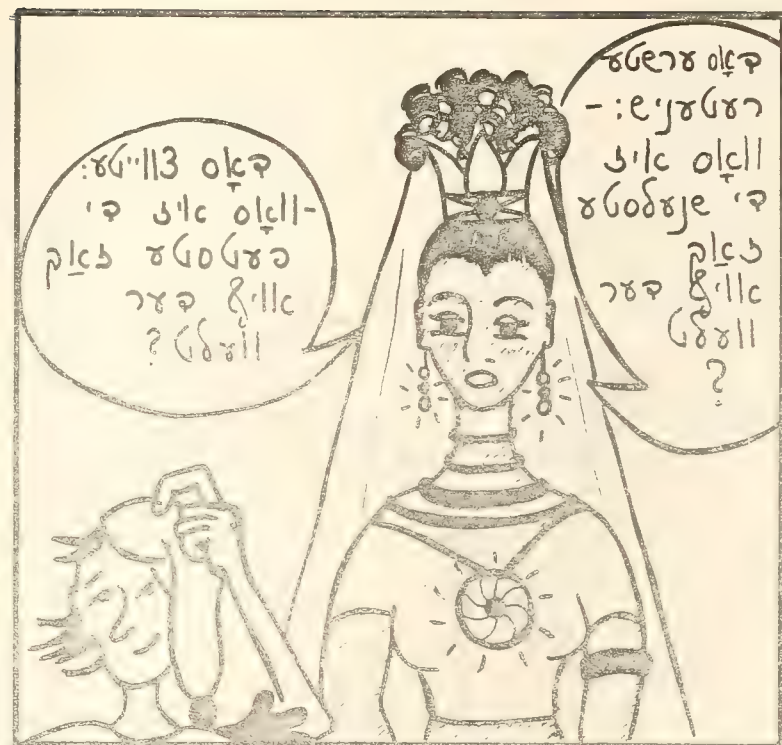 דאָס ערשטע
רעטעניש: -
וואָס איז
די שנעלסטע
זאַק
אויף דער
וועלט
?
דאָס צווייטע:
-וואָס איז די
פעטסטע זאַק
אויף דער
וועלט?